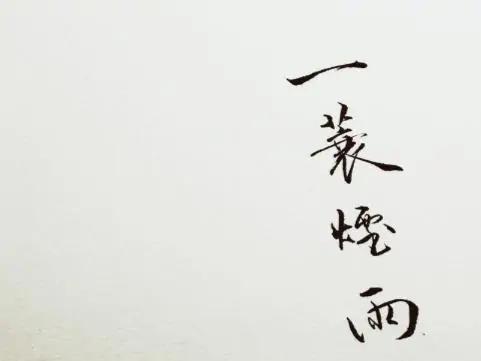 一蓑煙雨